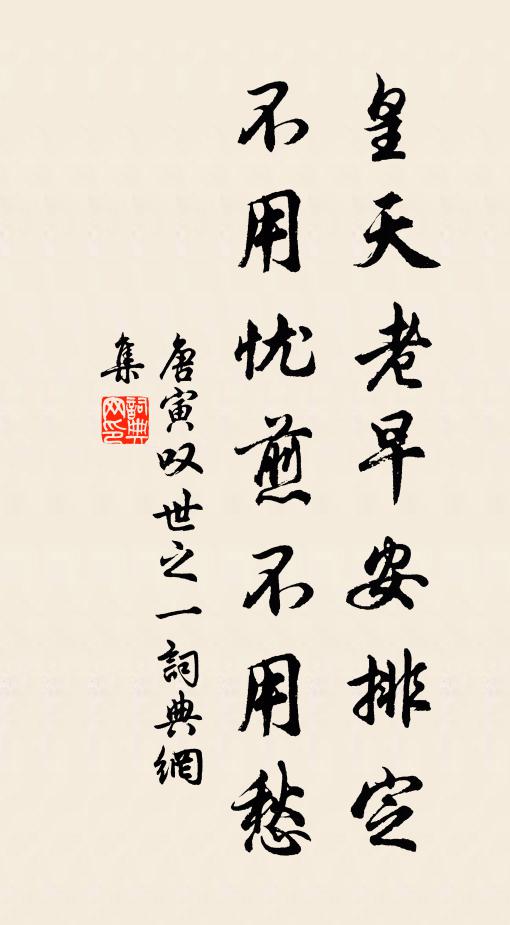 皇天老早安排定
不用忧煎不用愁
唐寅叹世之一詞典網
集
詞典
网印